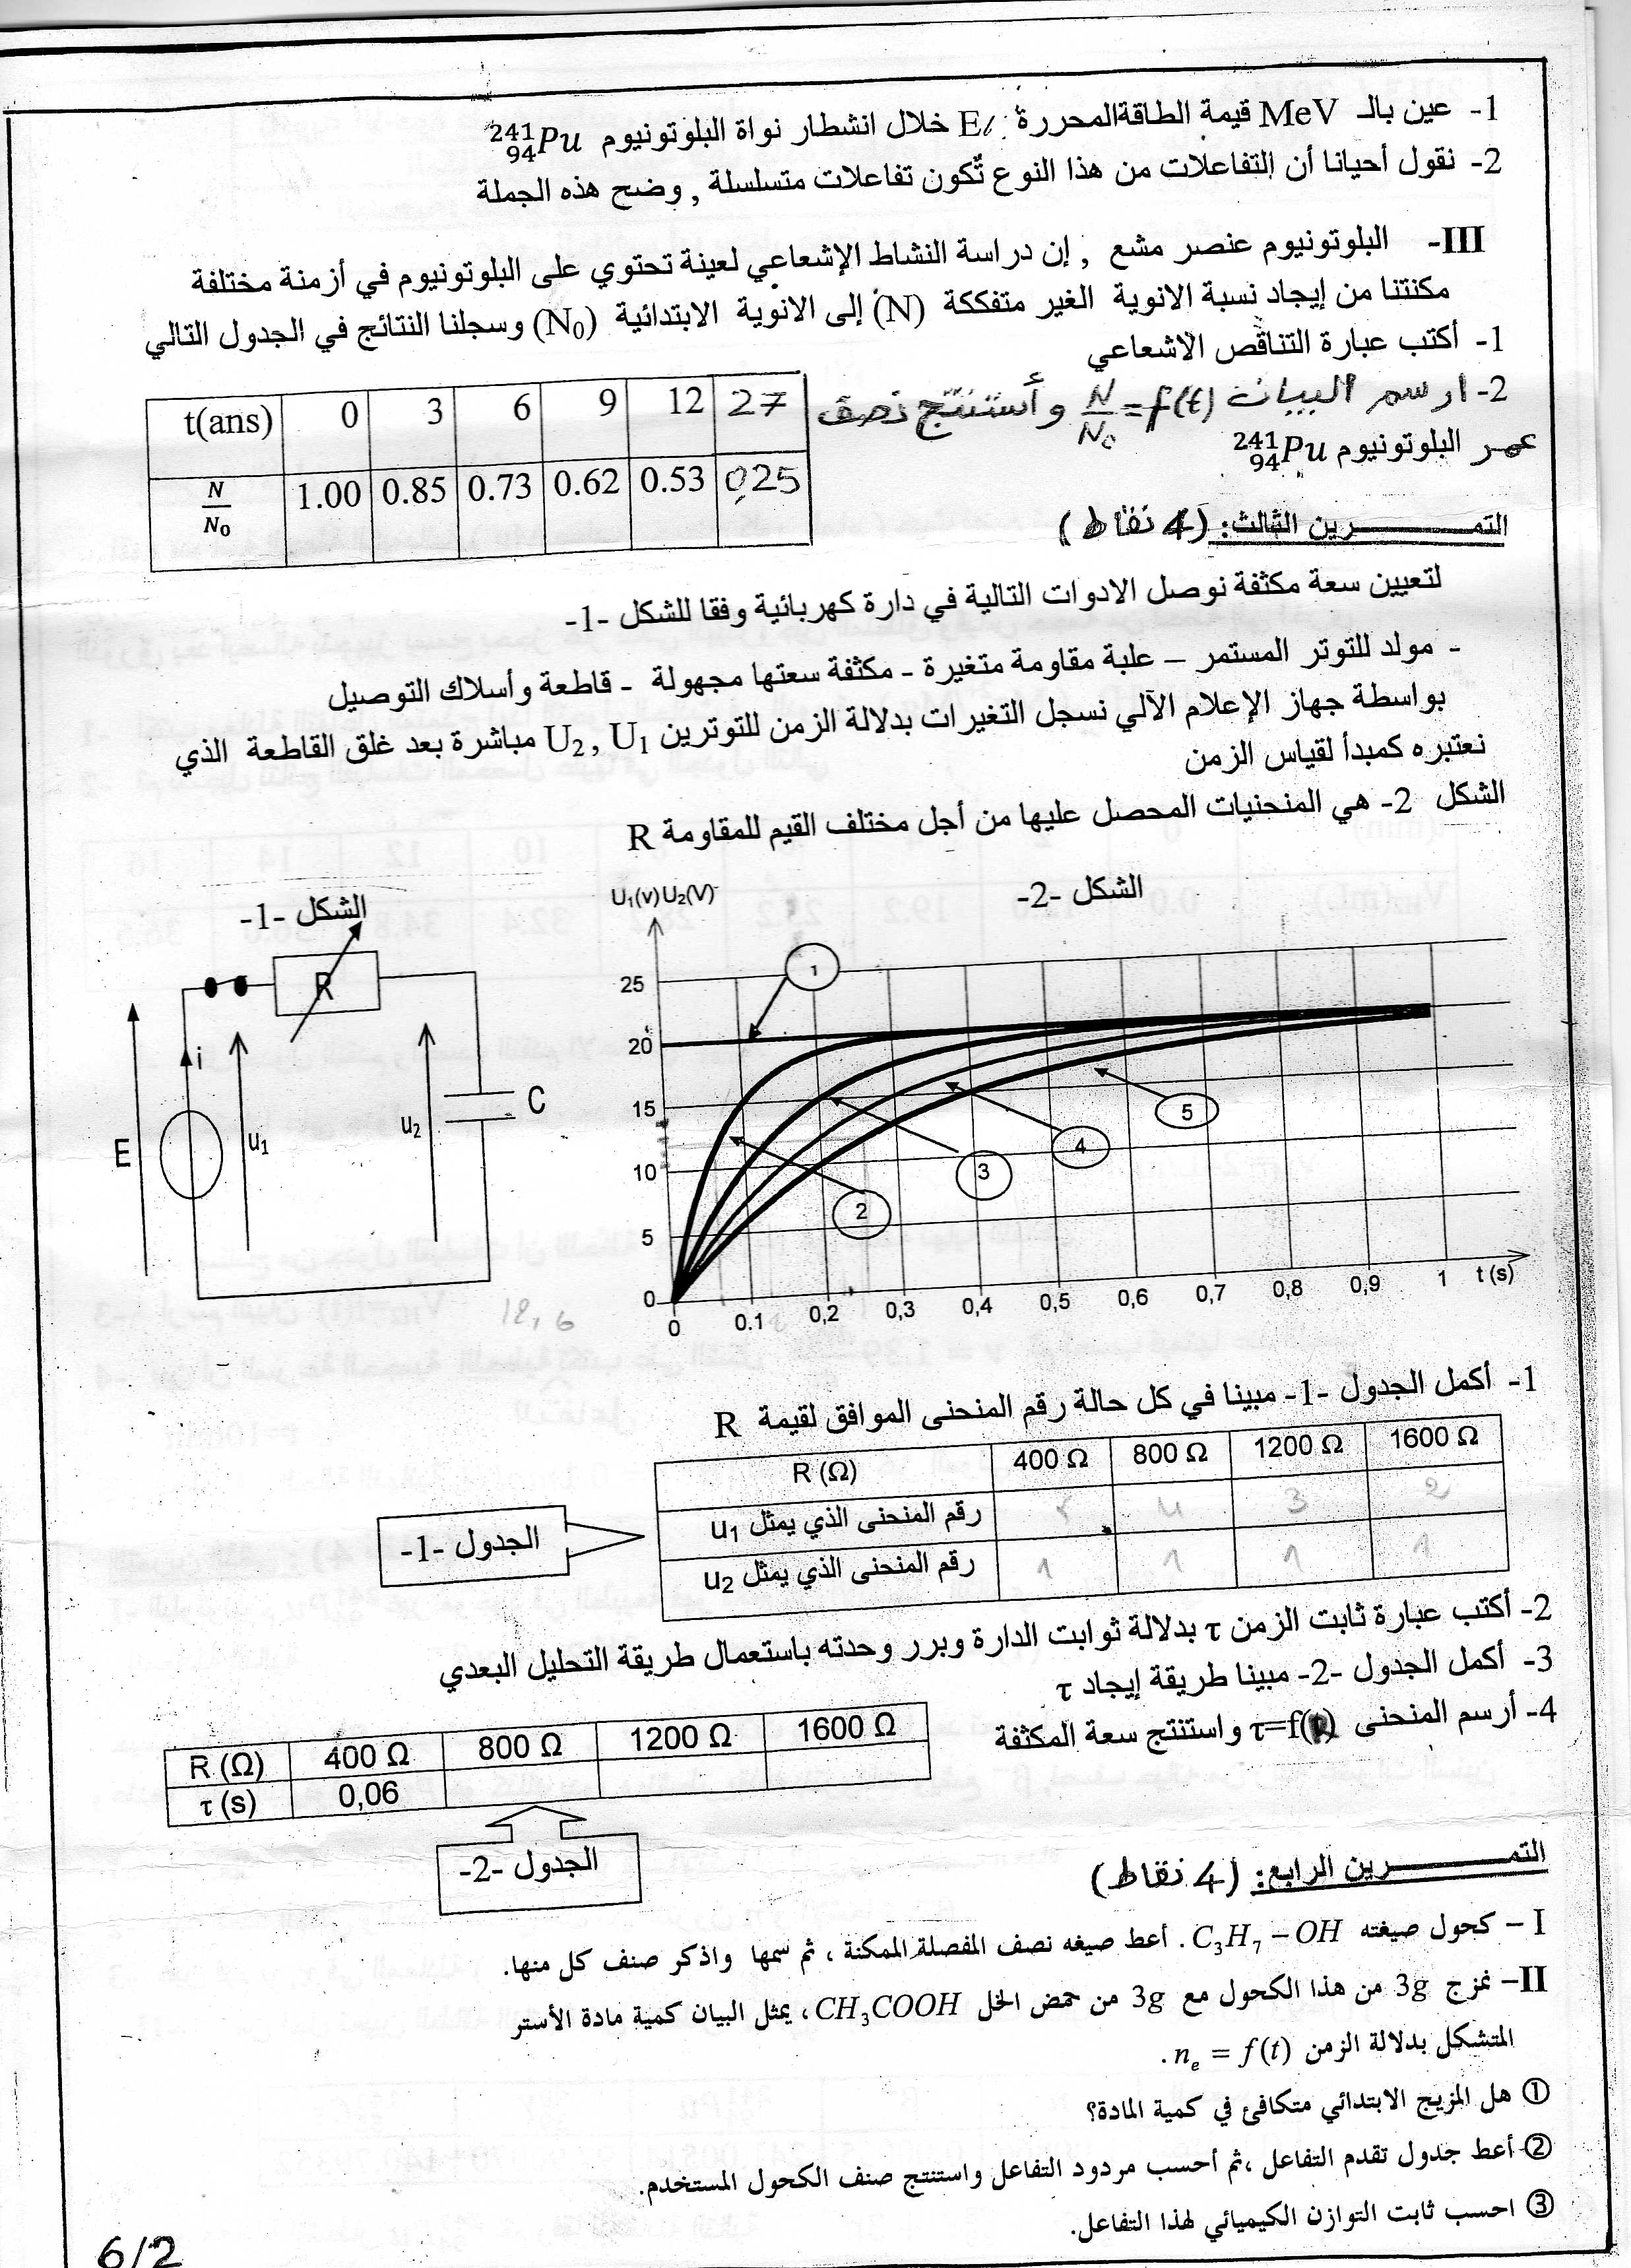 1- عين بالـ MeV قيمة الطاقةالمحررة El خلال انشطار نواة البلوتونيوم ²⁴¹₉₄Pu
2- نقول أحيانا أن التفاعلات من هذا النوع تكون تفاعلات متسلسلة , وضح هذه الجملة
III- البلوتونيوم عنصر مشع , إن دراسة النشاط الإشعاعي لعينة تحتوي على البلوتونيوم في أزمنة مختلفة
مكنتنا من إيجاد نسبة الانوية الغير متفككة (N) إلى الانوية الابتدائية (N₀) وسجلنا النتائج في الجدول التالي
1- أكتب عبارة التناقص الاشعاعي
2- ارسم البيان N/N₀ = f(t) وأستنتج نصف
عمر البلوتونيوم ²⁴¹₉₄Pu
t(ans) 0 3 6 9 12 27
N/N₀ 1.00 0.85 0.73 0.62 0.53 0,25
التمـــــرين الثالث: (4 نقاط)
لتعيين سعة مكثفة نوصل الادوات التالية في دارة كهربائية وفقا للشكل -1-
- مولد للتوتر المستمر – علبة مقاومة متغيرة - مكثفة سعتها مجهولة - قاطعة وأسلاك التوصيل
بواسطة جهاز الإعلام الآلي نسجل التغيرات بدلالة الزمن للتوترين U₂ , U₁ مباشرة بعد غلق القاطعة الذي
نعتبره كمبدأ لقياس الزمن
الشكل 2- هي المنحنيات المحصل عليها من أجل مختلف القيم للمقاومة R
الشكل -1-
R
i
E
u₁
u₂
C
الشكل -2-
U₁(v)U₂(V)
25
20
15
10
5
0
0 0.1 0,2 0,3 0,4 0,5 0,6 0,7 0,8 0,9 1 t (s)
1
2
3
4
5
12,6
1- أكمل الجدول -1- مبينا في كل حالة رقم المنحنى الموافق لقيمة R
R (Ω) 400 Ω 800 Ω 1200 Ω 1600 Ω
رقم المنحنى الذي يمثل u₁ 4 3 2
رقم المنحنى الذي يمثل u₂ 1 1 1 1
الجدول -1-
2- أكتب عبارة ثابت الزمن τ بدلالة ثوابت الدارة وبرر وحدته باستعمال طريقة التحليل البعدي
3- أكمل الجدول -2- مبينا طريقة إيجاد τ
4- أرسم المنحنى τ=f(R) واستنتج سعة المكثفة
R (Ω) 400 Ω 800 Ω 1200 Ω 1600 Ω
τ (s) 0,06
الجدول -2-
التمـــــرين الرابع: (4 نقاط)
I – كحول صيغته C₃H₇ – OH . أعط صيغه نصف المفصلة الممكنة ، ثم سمها واذكر صنف كل منها.
II– نمزج 3g من هذا الكحول مع 3g من حمض الخل CH₃COOH ، يمثل البيان كمية مادة الأستر
المتشكل بدلالة الزمن nₑ = f(t) .
① هل المزيج الابتدائي متكافئ في كمية المادة؟
② أعط جدول تقدم التفاعل ،ثم أحسب مردود التفاعل واستنتج صنف الكحول المستخدم.
③ احسب ثابت التوازن الكيميائي لهذا التفاعل.
6/2